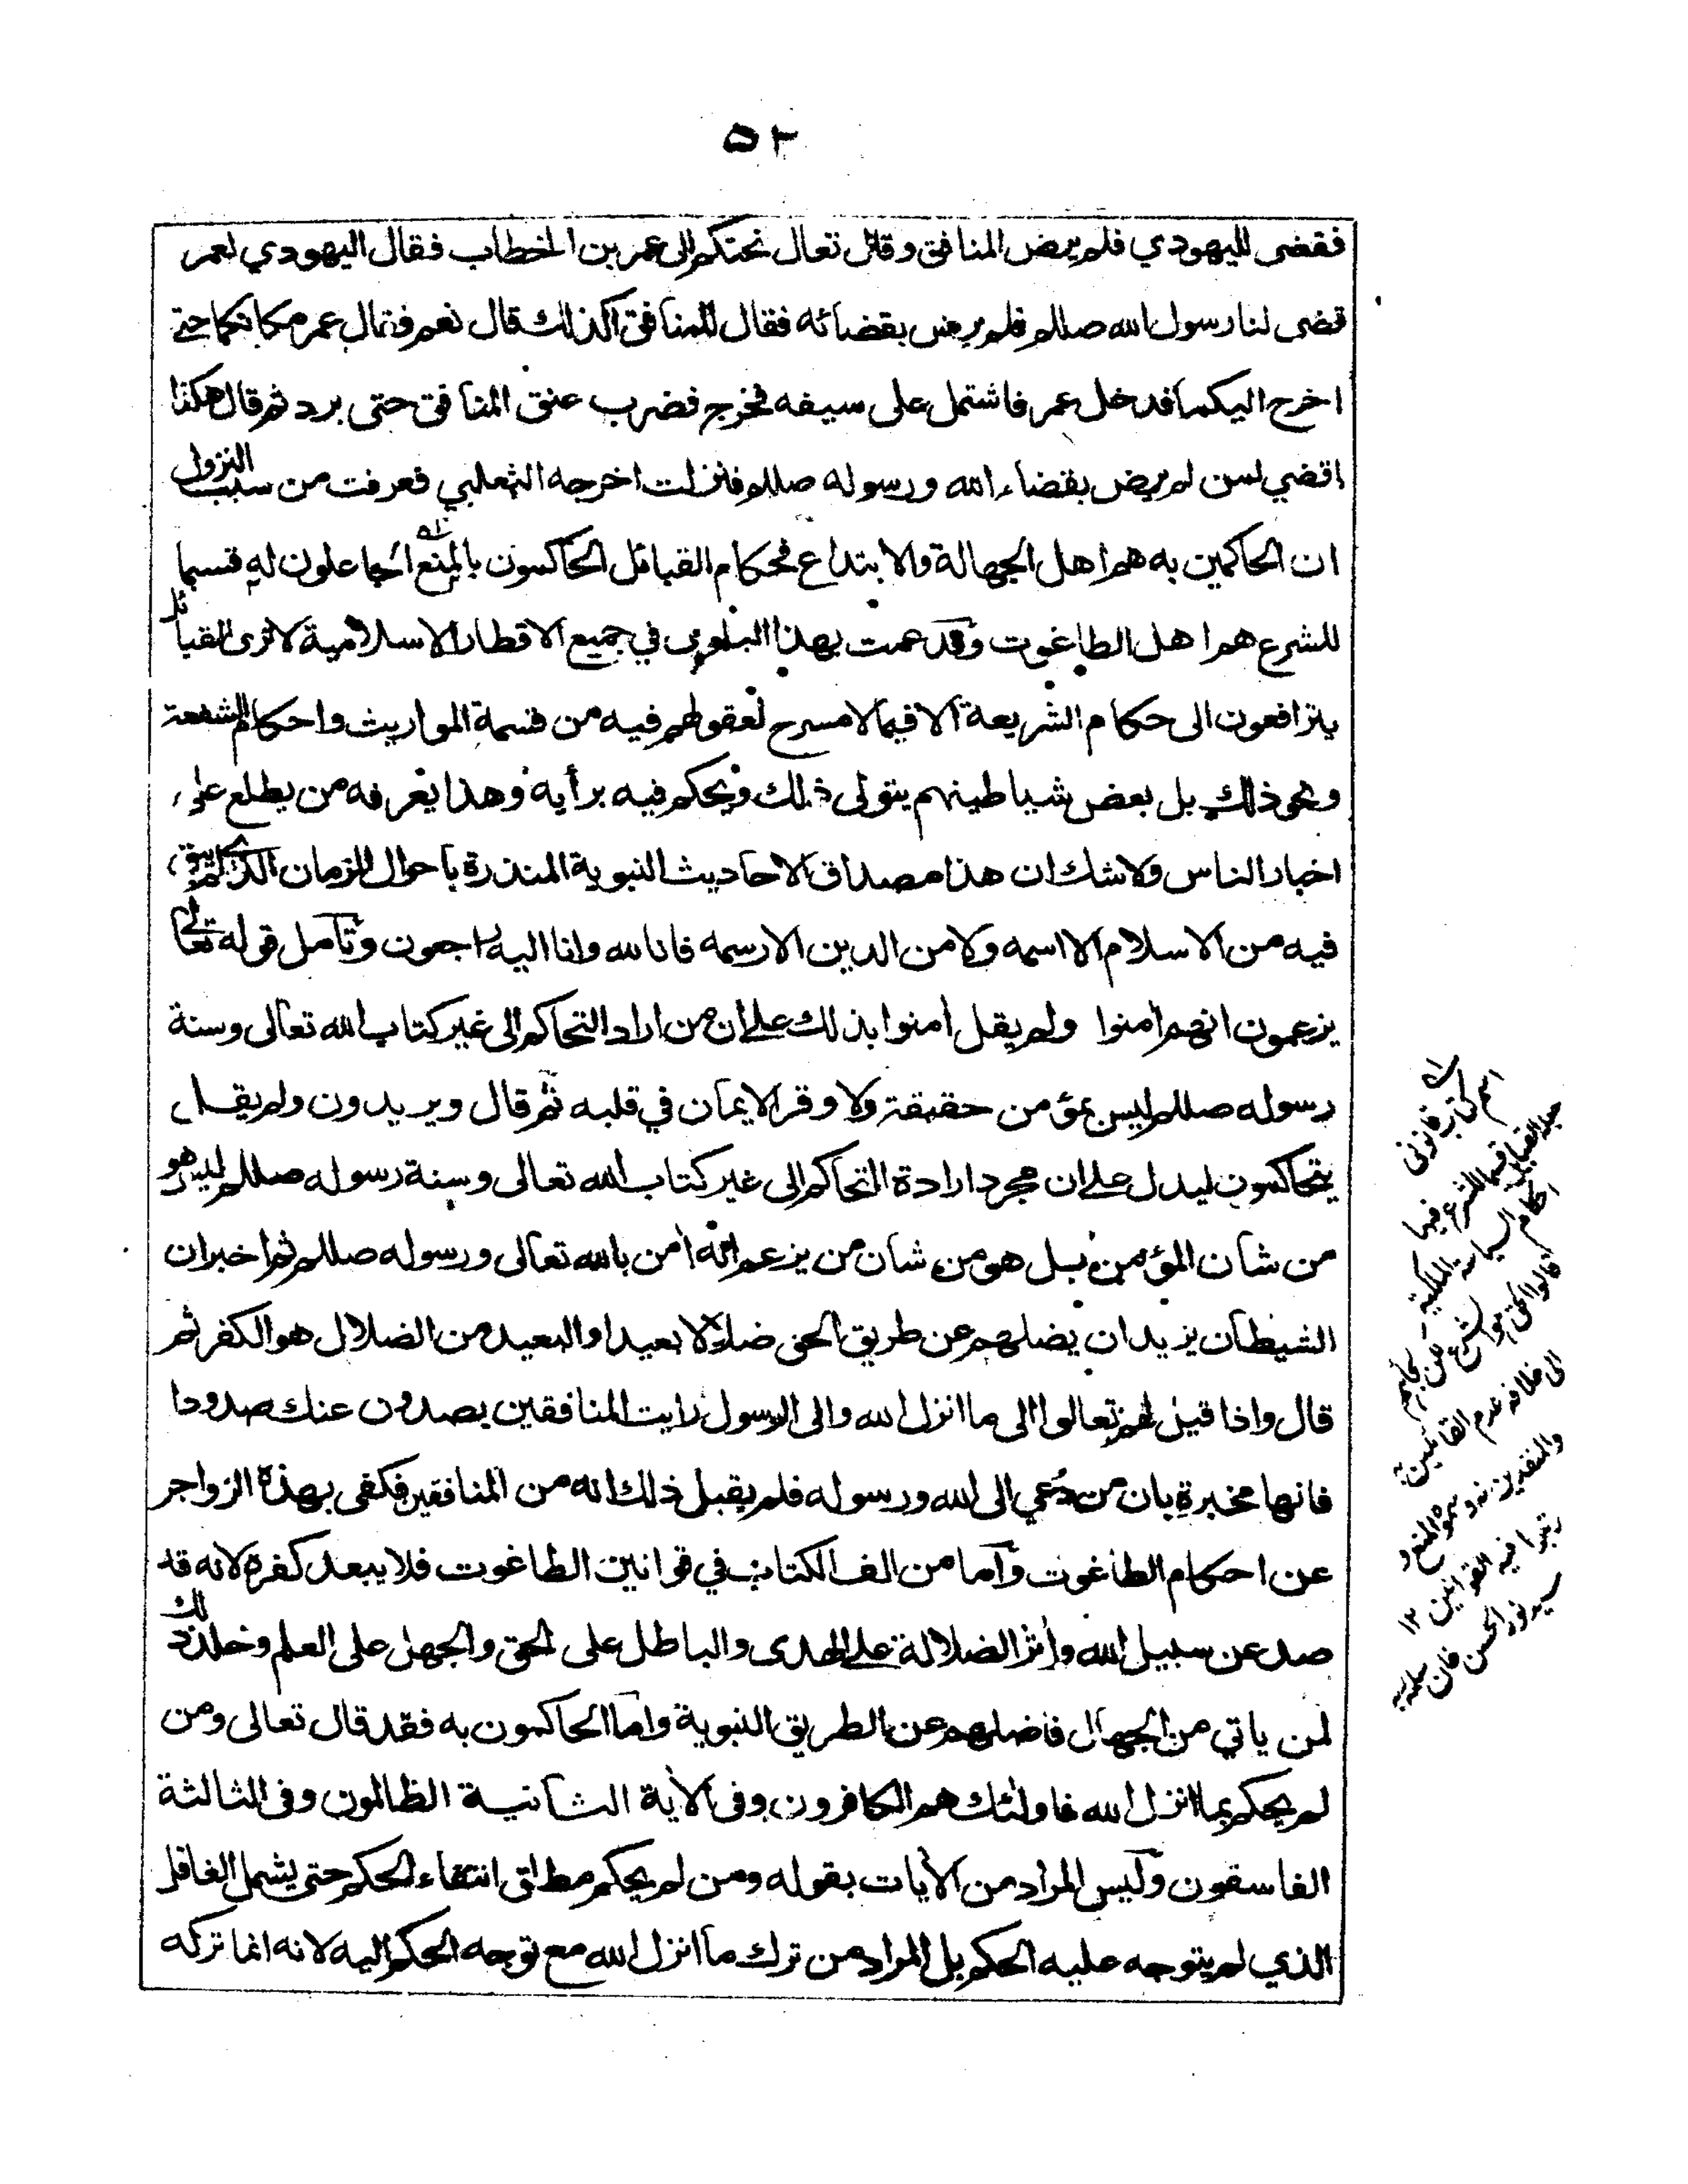 ٥٢
فقضى لليهودي فلم يرض المنافق وقال تعال نحتكم الى عمر بن الخطاب فقال اليهودي لعمر
قضى لنا رسول الله صللم فلم يرض بقضائه فقال للمنافق اكذلك قال نعم فقال عمر مكانكما حتى
اخرج اليكما فدخل عمر فاشتمل على سيفه فخرج فضرب عنق المنافق حتى برد ثم قال هكذا
اقضي لمن لم يرض بقضاء الله ورسوله صللم فنزلت اخرجه الثعلبي فعرفت من سبب النزول
ان الحاكمين به هم اهل الجهالة والابتداع فحكام القبائل الحاكمون بالمنع الجاعلون له قسيما
للشرع هم اهل الطاغوت وقد عمت بهذا البلوى في جميع الاقطار الاسلامية لا ترى القبائل
يترافعون الى حكام الشريعة الا فيما لا مسرح لعقولهم فيه من قسمة المواريث واحكام الشفعة
ونحو ذلك بل بعض شياطينهم يتولى ذلك ويحكم فيه برأيه وهذا يعرفه من يطلع على
اخبار الناس ولا شك ان هذا مصداق الاحاديث النبوية المنذرة باحوال الزمان الذي لم يبق
فيه من الاسلام الا اسمه ولا من الدين الا رسمه فانا لله وانا اليه راجعون وتأمل قوله تعالى
يزعمون انهم امنوا ولم يقل امنوا بذلك على ان من اراد التحاكم الى غير كتاب الله تعالى وسنة
رسوله صللم ليس بمؤمن حقيقة ولا وقر الايمان في قلبه ثم قال ويريدون ولم يقل
يتحاكمون ليدل على ان مجرد ارادة التحاكم الى غير كتاب الله تعالى وسنة رسوله صللم ليس هو
من شان المؤمن بل هو من شان من يزعم انه أمن بالله تعالى ورسوله صللم ثم اخبر ان
الشيطان يريد ان يضلهم عن طريق الحق ضلالا بعيدا والبعيد من الضلال هو الكفر ثم
قال واذا قيل لهم تعالوا الى ما انزل الله والى الرسول رايت المنافقين يصدون عنك صدودا
فانها مخبرة بان من دُعي الى الله ورسوله فلم يقبل ذلك انه من المنافقين فكفى بهذه الزواجر
عن احكام الطاغوت وأما من الف الكتاب في قوانين الطاغوت فلا يبعد كفره لانه قد
صد عن سبيل الله وأثر الضلالة على الهدى والباطل على الحق والجهل على العلم وخلد ذلك
لمن ياتي من الجهال فاضلهم عن الطريق النبوية واما الحاكمون به فقد قال تعالى ومن
لم يحكم بما انزل الله فاولئك هم الكافرون وفى الأية الثانية الظالمون وفى الثالثة
الفاسقون وليس المراد من الأيات بقوله ومن لم يحكم مطلق انتفاء الحكم حتى يشمل الغافل
الذي لم يتوجه عليه الحكم بل المراد من ترك ما انزل الله مع توجه الحكم اليه لانه انما تركه
اسم كتاب قانونى
قسيما للشرع فيها
احكام السياسة الملكية
قالوا الحق هو الشرع
الى خلافه
رتبوا فيه القوانين ١٢
سيد نور الحسن خان سلمه